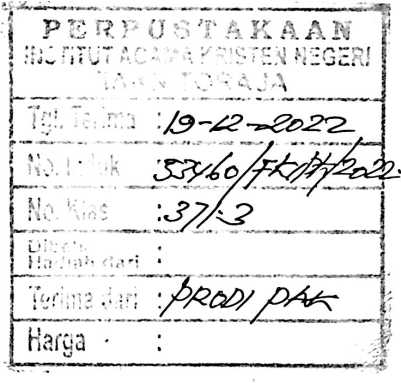 PERPUSTAKAAN
INSTITUT AGAMA KRISTEN NEGERI
TORAJA
Tgl. Terima : 19-12-2022
No. Induk
No. Klas : 371.3
Hadiah dari :
Terima dari : PRODI PAK
Harga :